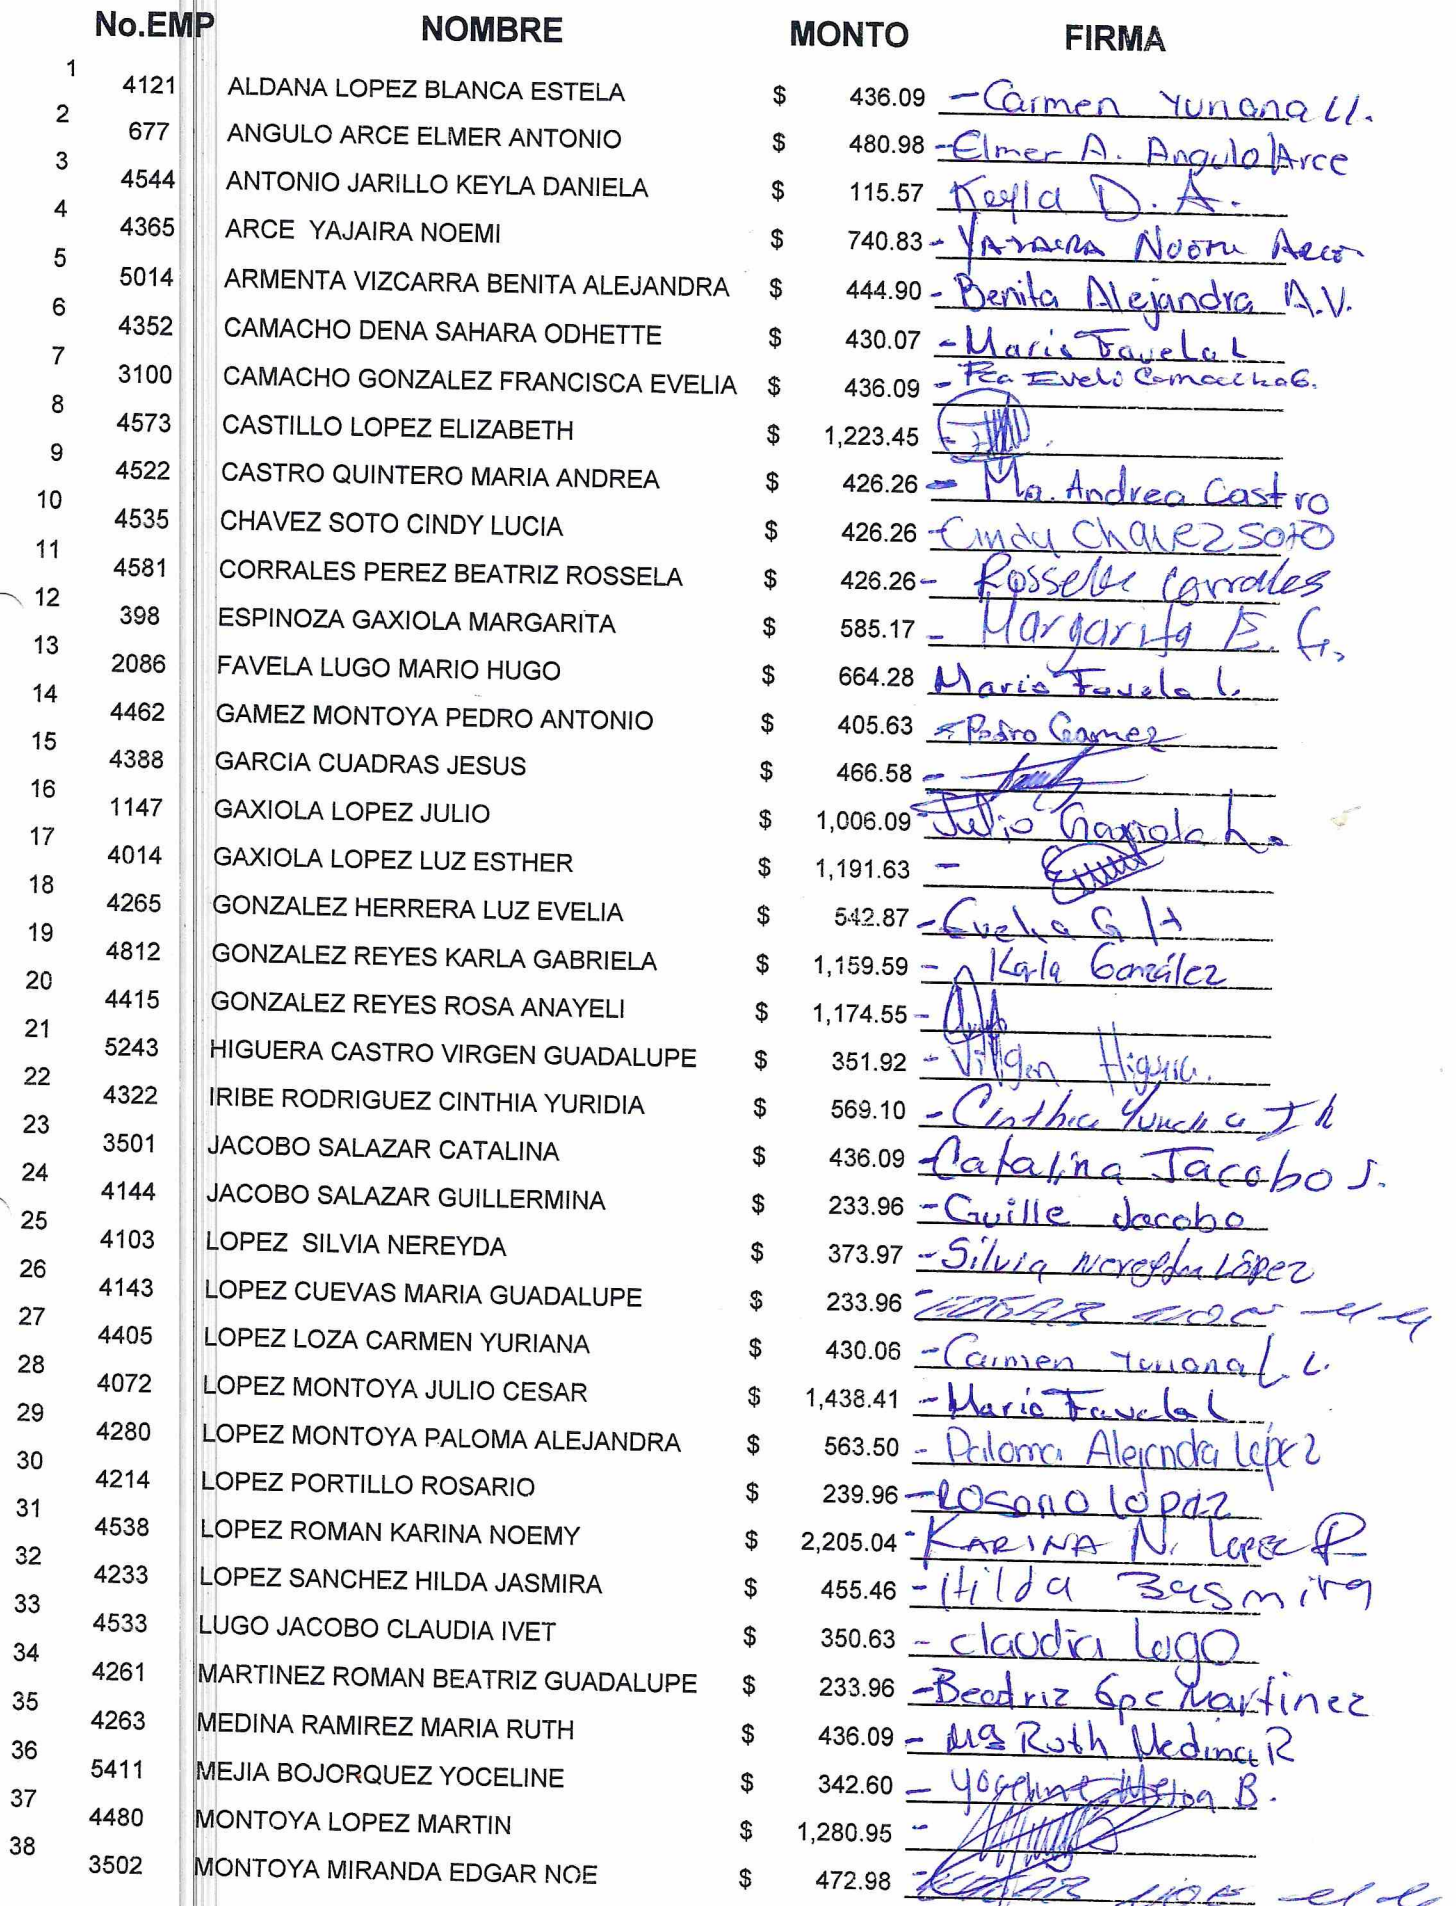 No.EMP NOMBRE MONTO FIRMA
1 4121 ALDANA LOPEZ BLANCA ESTELA $ 436.09 - Carmen Yuriana LL.
2 677 ANGULO ARCE ELMER ANTONIO $ 480.98 - Elmer A. Angulo Arce
3 4544 ANTONIO JARILLO KEYLA DANIELA $ 115.57 Keyla D. A.
4 4365 ARCE YAJAIRA NOEMI $ 740.83 - YAJAIRA Noemi Arce
5 5014 ARMENTA VIZCARRA BENITA ALEJANDRA $ 444.90 - Benita Alejandra A.V.
6 4352 CAMACHO DENA SAHARA ODHETTE $ 430.07 - Mario Favela L
7 3100 CAMACHO GONZALEZ FRANCISCA EVELIA $ 436.09 - Fca Eveli Camacho G.
8 4573 CASTILLO LOPEZ ELIZABETH $ 1,223.45 -
9 4522 CASTRO QUINTERO MARIA ANDREA $ 426.26 - Ma. Andrea Castro
10 4535 CHAVEZ SOTO CINDY LUCIA $ 426.26 - Cindy Chavez Soto
11 4581 CORRALES PEREZ BEATRIZ ROSSELA $ 426.26 - Corrales
12 398 ESPINOZA GAXIOLA MARGARITA $ 585.17 - Margarita E. G.
13 2086 FAVELA LUGO MARIO HUGO $ 664.28 Mario Favela L.
14 4462 GAMEZ MONTOYA PEDRO ANTONIO $ 405.63 - Pedro Gamez
15 4388 GARCIA CUADRAS JESUS $ 466.58 -
16 1147 GAXIOLA LOPEZ JULIO $ 1,006.09 - Julio Gaxiola L.
17 4014 GAXIOLA LOPEZ LUZ ESTHER $ 1,191.63 -
18 4265 GONZALEZ HERRERA LUZ EVELIA $ 542.87 - Evelia G H
19 4812 GONZALEZ REYES KARLA GABRIELA $ 1,159.59 - Karla González
20 4415 GONZALEZ REYES ROSA ANAYELI $ 1,174.55 -
21 5243 HIGUERA CASTRO VIRGEN GUADALUPE $ 351.92 - Virgen Higuera.
22 4322 IRIBE RODRIGUEZ CINTHIA YURIDIA $ 569.10 - Cinthia Yuridia I R
23 3501 JACOBO SALAZAR CATALINA $ 436.09 - Catalina Jacobo S.
24 4144 JACOBO SALAZAR GUILLERMINA $ 233.96 - Guille Jacobo
25 4103 LOPEZ SILVIA NEREYDA $ 373.97 - Silvia Nereyda López
26 4143 LOPEZ CUEVAS MARIA GUADALUPE $ 233.96 - EDGAR NOE M M
27 4405 LOPEZ LOZA CARMEN YURIANA $ 430.06 - Carmen Yuriana L. L.
28 4072 LOPEZ MONTOYA JULIO CESAR $ 1,438.41 - Mario Favela L
29 4280 LOPEZ MONTOYA PALOMA ALEJANDRA $ 563.50 - Paloma Alejandra López
30 4214 LOPEZ PORTILLO ROSARIO $ 239.96 - Rosario López
31 4538 LOPEZ ROMAN KARINA NOEMY $ 2,205.04 - KARINA N. LOPEZ R
32 4233 LOPEZ SANCHEZ HILDA JASMIRA $ 455.46 - Hilda Jasmira
33 4533 LUGO JACOBO CLAUDIA IVET $ 350.63 - claudia Lugo
34 4261 MARTINEZ ROMAN BEATRIZ GUADALUPE $ 233.96 - Beatriz Gpe Martinez
35 4263 MEDINA RAMIREZ MARIA RUTH $ 436.09 - Ma Ruth Medina R
36 5411 MEJIA BOJORQUEZ YOCELINE $ 342.60 - Yoceline Mejia B.
37 4480 MONTOYA LOPEZ MARTIN $ 1,280.95 -
38 3502 MONTOYA MIRANDA EDGAR NOE $ 472.98 - EDGAR NOE M M